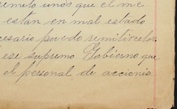 remito unos que el me
estan en mal estado
cesario puedo remitirselos
ese supremo Gobierno que
el personal de acciones